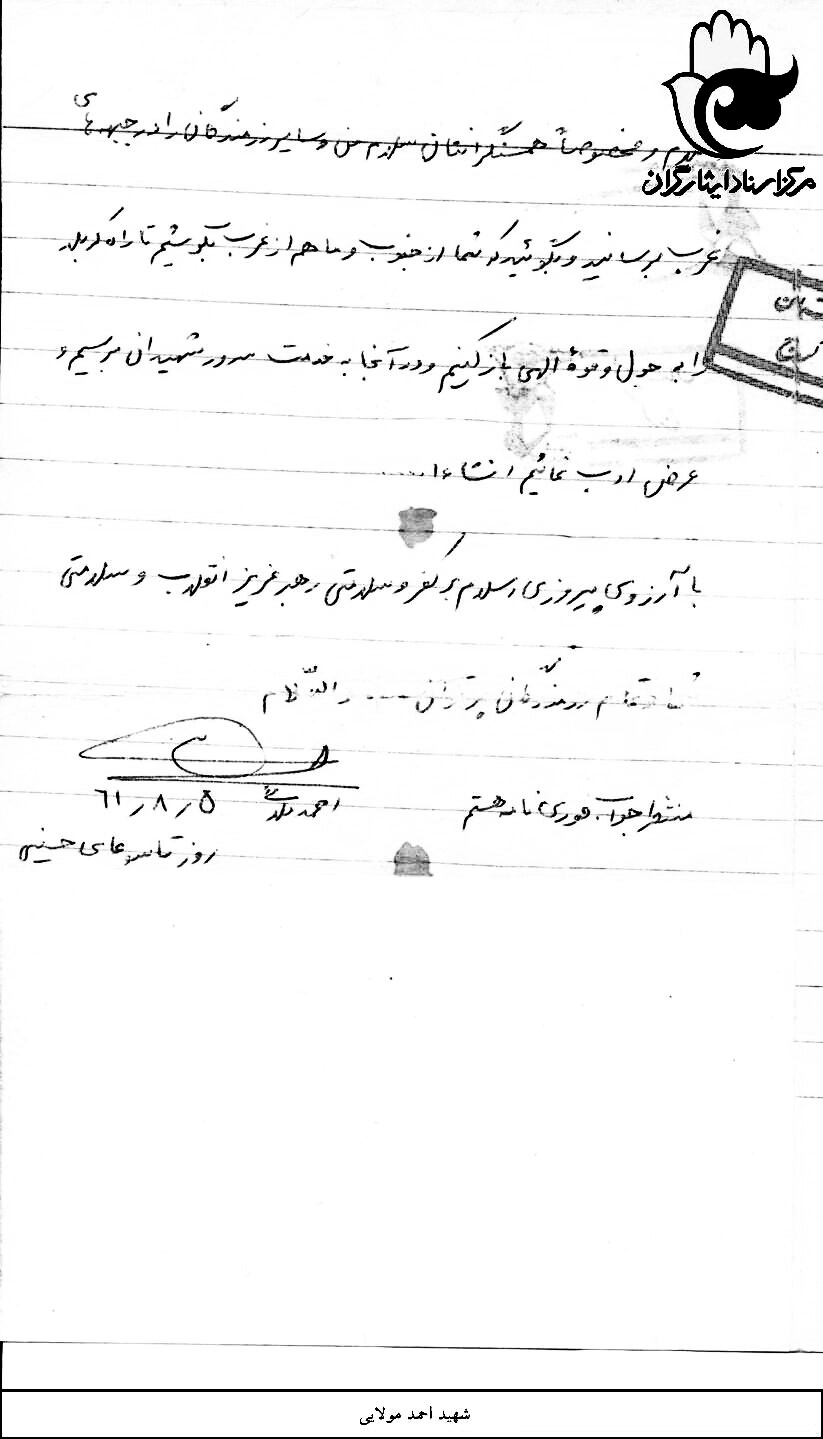 مرکز اسناد ایثارگران
مخصوصاً همسنگرانتان سلام من و سایر رزمندگان را در جبهه های
غرب برسانید و بگوئید که شما از جنوب و ما هم از غرب بکوشیم تا راه کربلا
را به حول و قوهٔ الهی باز کنیم و در آنجا به خدمت سرور شهیدان برسیم و
عرض ادب نمائیم انشاءا.....
با آرزوی پیروزی اسلام بر کفر و سلامتی رهبر عزیز انقلاب و سلامتی
شما و تمام رزمندگان ... والسّلام
منتظر جواب فوری نامه هستم
احمد مولایی ۶۱٫۸٫۵
روز تاسوعای حسینی
کرج
شهید احمد مولایی